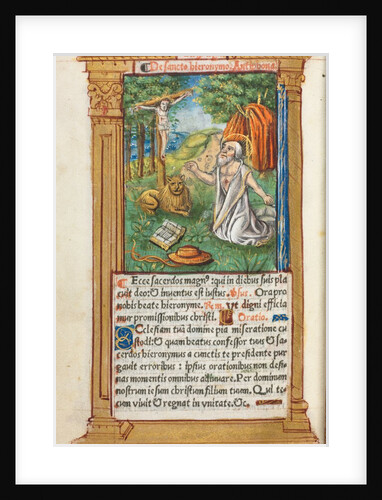 De sancto hieronymo. Antiphona.
Ecce sacerdos magn⁹: qui in diebus suis pla
cuit deo: & inventus est iustus. Vsus. Ora pro
nobis beate hieronyme. Res. Vt digni efficia
mur promissionibus christi. Oratio.
Ecclesiam tuā domine pia miseratione cu
stodi: & quam beatus confessor tuus & sa
cerdos hieronimus a cunctis te presidente pur
gauit erroribus: ipsius orationibus non desi
nas momentis omnibus
Per dominum
nostrum iesum christum filium tuum. Qui te
cum viuit & regnat in vnitate. &c.